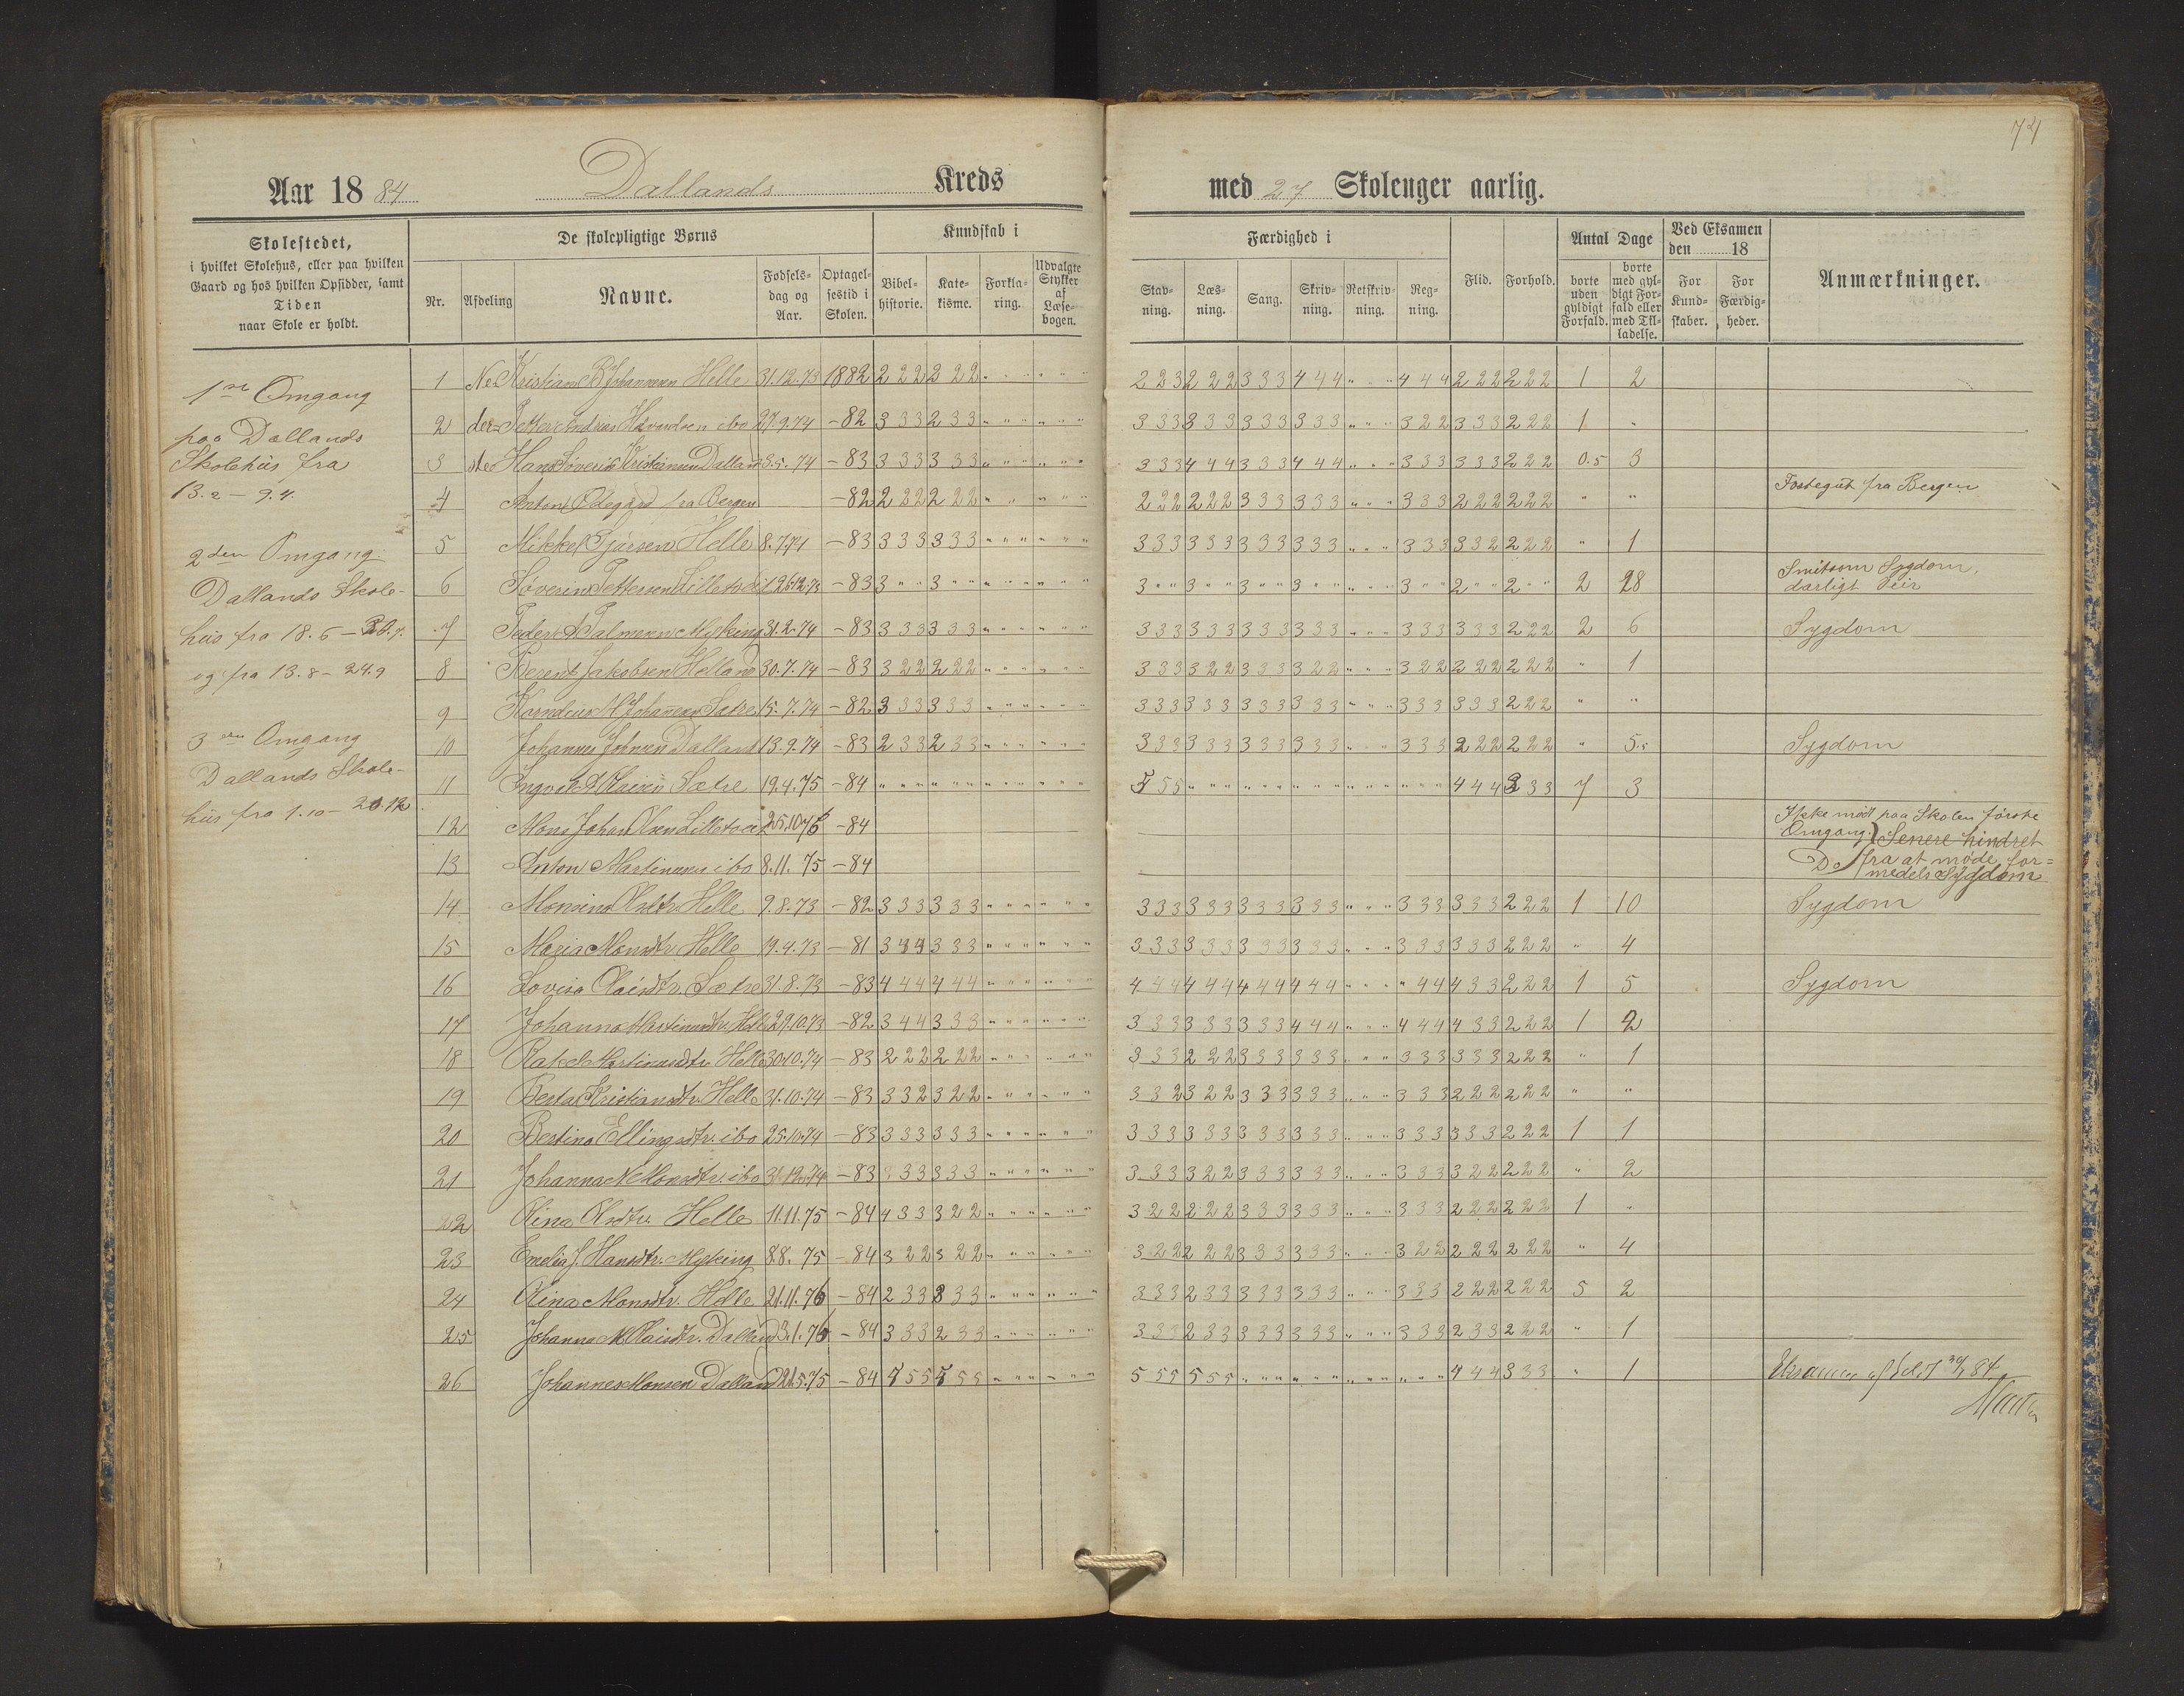 74
Aar 1884 Dallands Kreds med 27 Skoleuger aarlig.
Skolestedet,
i hvilket Skolehus, eller paa hvilken
Gaard og hos hvilken Opsidder, samt
Tiden
naar Skole er holdt.
De skolepligtige Børns
Nr. Afdeling Navne. Fødselsdag og Aar. Optagelsestid i Skolen.
Kundskab i
Bibelhistorie. Katekisme. Forklaring. Udvalgte Stykker af Læsebogen.
Færdighed i
Stavning. Læsning. Sang. Skrivning. Retskrivning. Regning.
Flid. Forhold.
Antal Dage
borte uden gyldigt Forfald. borte med gyldigt Forfald eller med Tilladelse.
Ved Eksamen den 18
For Kundskaber. For Færdigheder.
Anmærkninger.
1ste Omgang
paa Dallands
Skolehus fra
13.2 – 9.4.
2den Omgang
Dallands Skole-
hus fra 18.6 –
og fra 13.8 – 24.9
3die Omgang
Dallands Skole-
hus fra 1.10 – 20.12
1 Ne- Kristian B Johannesen Helle 31.12.73 1882 2 2 2 2 2 2 " " " " " " 2 2 3 2 2 2 3 3 3 4 4 4 " " " 4 4 4 2 2 2 2 2 2 1 2
2 der- Petter Andreas Haavardsen ibd 27.9.74 –82 3 3 3 2 3 3 " " " " " " 3 3 3 3 3 3 3 3 3 3 3 3 " " " 3 2 2 3 3 3 2 2 2 1 "
3 ste Hans Søverin Kristiansen Dalland 3.5.74 –83 3 3 3 3 3 3 " " " " " " 3 3 3 4 4 4 3 3 3 4 4 4 " " " 3 3 3 3 3 3 2 2 2 0.5 3
4 Anton Ødegård fra Bergen –82 2 2 2 2 2 2 " " " " " 2 2 2 2 2 2 3 3 3 3 3 3 " " " 3 3 3 2 2 2 2 2 2 " " Fostegut fra Bergen
5 Mikkel Helle 8.7.71 –83 3 3 3 3 3 3 " " " " " " 3 3 3 3 3 3 3 3 3 3 3 3 " " " 3 3 3 3 3 2 2 2 2 " 1
6 Søverin Pettersen Lilletvedt 26.12.73 –83 3 " " 3 " " " " " " " " 3 " " 3 " " 3 " " 3 " " " " " 3 " " 2 " " 2 " " 2 28 Smitsom Sygdom, darligt Veir
7 Peder A Palmesen Myking 31.2.74 –83 3 3 3 3 3 3 " " " " " " 3 3 3 3 3 3 3 3 3 3 3 3 " " " 3 3 3 3 3 3 2 2 2 2 6 Sygdom
8 Berent Jakobsen Helland 30.7.74 –83 3 2 2 2 2 2 " " " " " " 3 3 3 3 2 2 3 3 3 3 2 2 " " " 3 2 2 2 2 2 2 2 2 " 1
9 Kornelius M Johannesen Sætre 15.7.74 –82 3 3 3 3 3 3 " " " " " " 3 3 3 3 3 3 3 3 3 3 3 3 " " " 3 3 3 3 3 3 2 2 2 " "
10 Johannes Johnsen Dalland 13.9.74 –83 2 3 3 2 3 3 " " " " " " 3 3 3 3 3 3 3 3 3 3 3 3 " " " 3 3 3 2 2 2 2 2 2 " 5.5 Sygdom
11 Ingvald Sætre 19.4.75 –84 " " " " " " " " " " " " 5 5 5 " " " " " " " " " " " " " " " 4 4 4 3 3 3 7 3
12 Mons Johan Olsen Lilletvedt 25.10.76 –84 Ikke mødt paa Skolen første Omgang. Senere hindret
13 Anton Martinussen ibd 8.11.75 –84 Do fra at møde formedels Sygdom
14 Monsina Olsdtr. Helle 9.8.73 –82 3 3 3 3 3 3 " " " " " " 3 3 3 3 3 3 3 3 3 3 3 3 " " " 3 3 3 3 3 3 2 2 2 1 10 Sygdom
15 Maria Monsdtr. Helle 19.4.73 –81 3 4 4 3 3 3 " " " " " " 3 3 3 3 3 3 3 3 3 3 3 3 " " " 3 3 3 3 3 3 2 2 2 " 4
16 Lovisa Sætre 31.8.73 –83 4 4 4 4 4 4 " " " " " " 4 4 4 4 4 4 4 4 4 4 4 4 " " " " 4 4 4 3 3 2 2 2 1 5 Sygdom
17 Johanna Martinusdtr. Helle 29.10.73 –82 3 4 4 3 3 3 " " " " " " 3 3 3 3 3 3 3 3 3 4 4 4 " " " 4 4 4 4 3 3 2 2 2 1 2
18 Rakel Martinusdtr. Helle 30.10.74 –83 2 2 2 2 2 2 " " " " " " 3 3 3 2 2 2 3 3 3 3 3 3 " " " 3 3 3 3 3 3 2 2 2 " 1
19 Berta Kristiansdtr. Helle 31.10.74 –83 3 3 2 3 2 2 " " " " " " 3 3 2 3 2 2 3 3 3 3 3 3 " " " 3 3 3 2 2 2 2 2 2 " "
20 Bertina Ellingsdtr. ibd 25.10.74 –83 3 3 3 3 3 3 " " " " " " 3 3 3 3 3 3 3 3 3 3 3 3 " " " 3 3 3 3 3 3 2 2 2 1 1
21 Johanna N Monsdtr. ibd 31.12.74 –83 3 3 3 3 3 3 " " " " " " 3 3 3 3 2 2 3 3 3 3 3 3 " " " 3 3 3 3 2 2 2 2 2 " 2
22 Olina Olsdtr. Helle 11.11.75 –84 4 3 3 3 2 2 " " " " " " 3 2 2 2 2 2 3 3 3 3 3 3 " " " 3 3 3 2 2 2 2 2 2 1 "
23 Emelia J. Hansdtr. Myking 8.8.75 –84 3 2 2 3 2 2 " " " " " " 3 2 2 2 2 2 3 3 3 3 3 3 " " " 3 2 2 2 2 2 2 2 2 " 4
24 Olina Monsdtr. Helle 21.11.76 –84 2 3 3 3 3 3 " " " " " " 3 3 3 2 3 3 3 3 3 3 3 3 " " " 3 3 3 2 2 2 2 2 2 5 2
25 Johanna M Dalland 3.1.76 –84 3 3 3 2 3 3 " " " " " " 3 3 3 2 3 3 3 3 3 3 3 3 " " " 3 3 3 2 3 3 2 2 2 " 1
26 Johannes Monsen Dalland 21.5.75 –84 5 5 5 5 " " " " " " 5 5 5 5 5 5 " " " " " " " " " " " " 4 4 4 3 3 3 " 1 Eksamen afholdt 84.